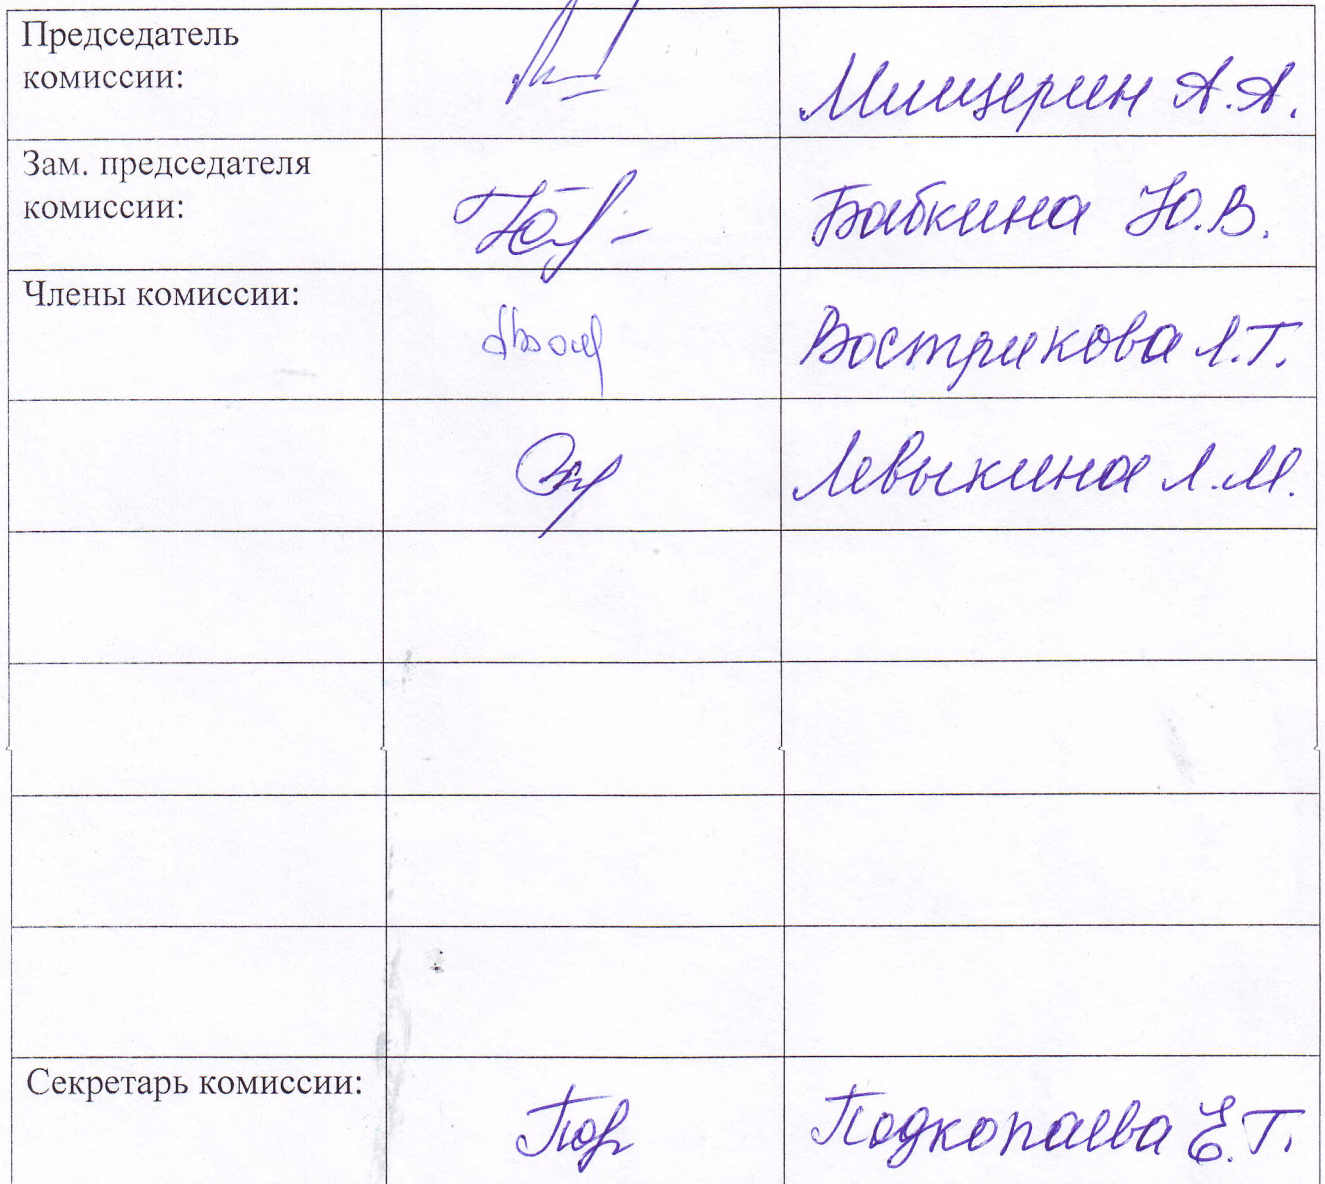 Председатель
комиссии:
Мищерин А.А.
Зам. председателя
комиссии:
Бабкина Ю.В.
Члены комиссии:
Вострикова Л.Т.
Левыкина Л.М.
Секретарь комиссии:
Подкопаева Е.Т.